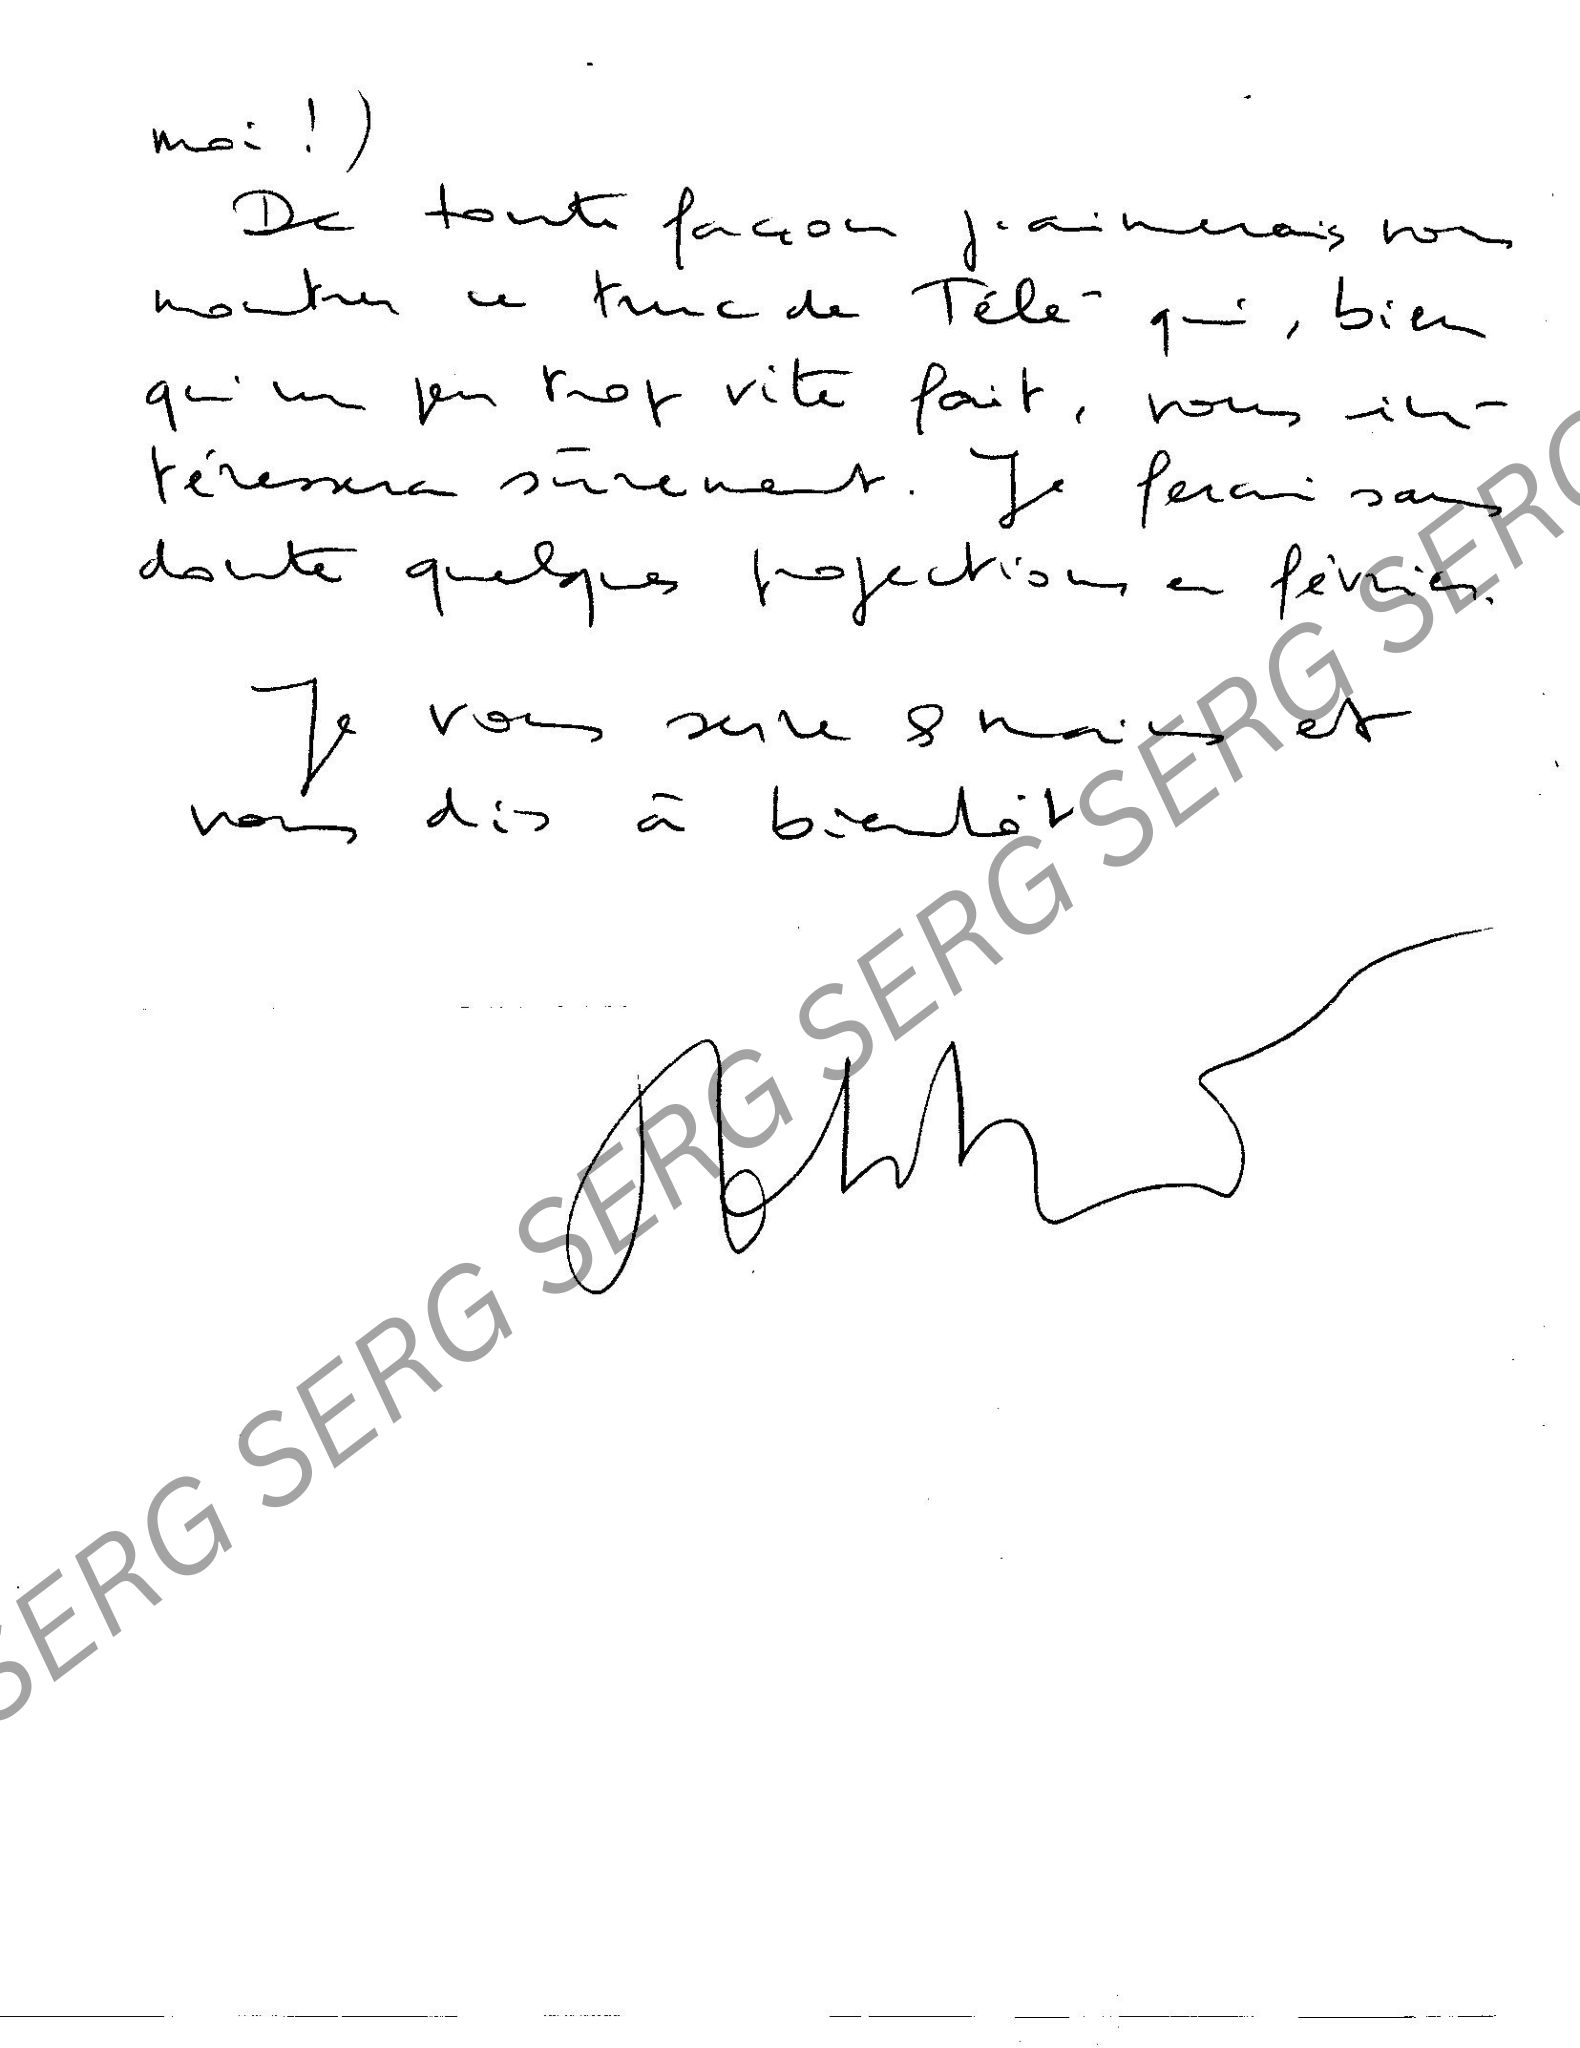 moi !)
De toute façon j'aimerais vous
montrer ce truc de Télé qui, bien
qu'un peu trop vite fait, vous in-
téressera sûrement. Je ferai sans
doute quelques projections en février.
Je vous serre 8 mains et
vous dis à bientôt
SERG SERG SERG SERG SERG SERG